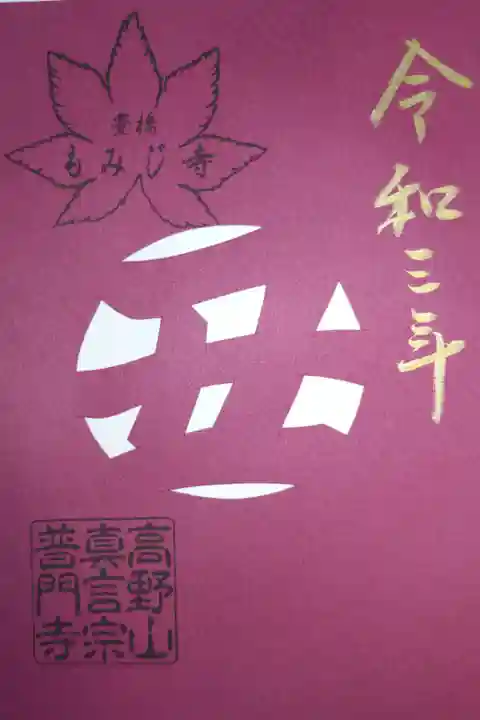 令和三年
豊橋
もみじ寺
高野山
真言宗
普門寺